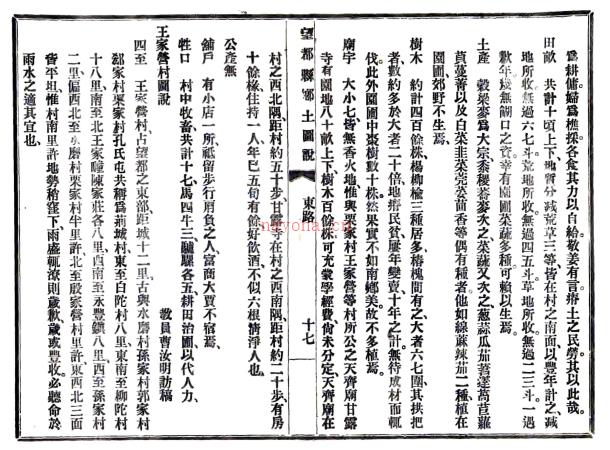 為耕傭婦為樵採各食其力以自給敬姜有言瘠土之民勞其以此哉
田畝 共計十頃上下地質分減荒草三等皆在村之南面以豐年計之減
地所收無過六七斗荒地所收無過四五斗草地所收無過二三斗一遇
歉年幾無餬口之資幸有園圃菜蔬多種可賴以生焉
土產 穀粱麥為大宗黍稷蕎麥次之菜蔬又次之葱蒜瓜茄菩薘萵苣蘿
蔔蔓菁以及白菜韭菜芫荽茴香等偶有種者他如線蔴辣茄二種植在
園圃郊野不生焉
樹木 約計四百餘株楊柳榆三種居多椿槐間有之大者六七圍其拱把
者數約多於大者二十倍地瘠民貧屢年變賣十年之計無待成材而輒
伐此外園圃中棗樹數十株然果實不如南鄉美故不多植焉
廟宇 大小七皆無香火地惟與栗家村王家營等村所公之天齊廟甘露
寺有園地八十畝上下樹木百餘株可充蒙學經費尚未分定天齊廟在
望都縣鄉土圖說
東路
十七
村之西北隅距村約五十步甘露寺在村之西南隅距村約二十步有房
十餘椽住持一人年已五旬有餘好飲酒不似六根清淨人也
公產無
舖戶 有小店一所祇留步行肩負之人富商大賈不宿焉
牲口 村中牧畜共計十七馬四牛三驢騾各五耕田治圃以代人力
教員曹汝明訪稿
王家營村圖說
四至 王家營村占望都之東部距城十二里古與水磨村孫家村郭家村
郄家村栗家村孔氏屯共稱為荊城村東至白陀村八里東南至柳陀村
十八里南至北王家疃陳家莊各八里西南至永豐鎮八里西至孫家村
二里偏西北至水磨村栗家村半里許北至殷家營村里許東西北三面
皆平坦惟村南里許地勢稍窪下雨盛輒潦則歲歉歲或豐收必聽命於
雨水之適其宜也